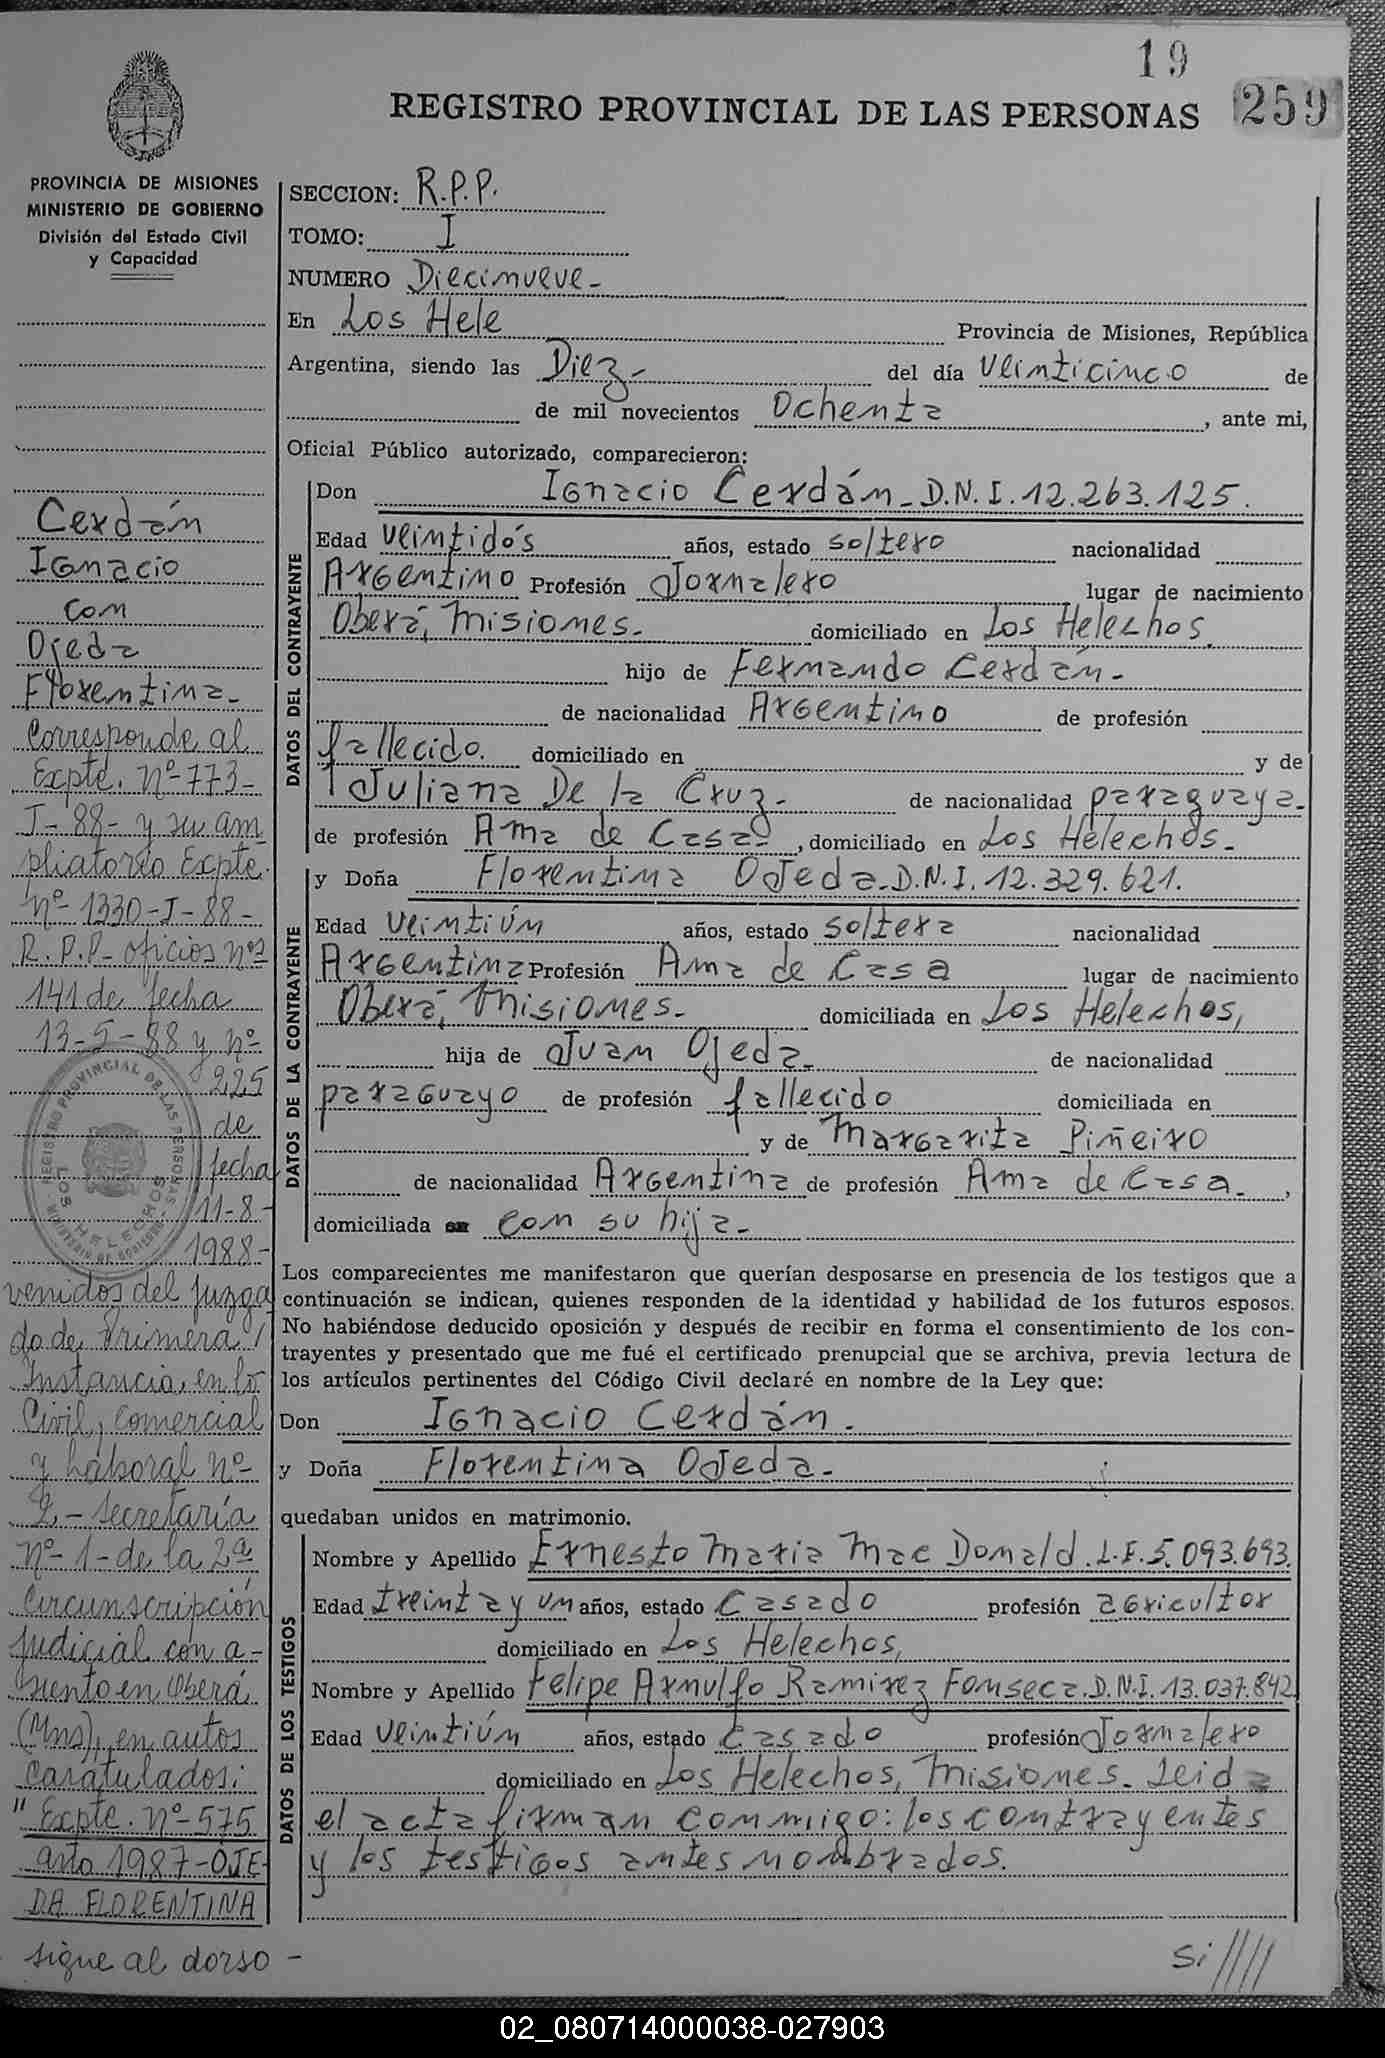 19
REGISTRO PROVINCIAL DE LAS PERSONAS 259
PROVINCIA DE MISIONES
MINISTERIO DE GOBIERNO
División del Estado Civil
y Capacidad
SECCION: R.P.P.
TOMO: I
NUMERO Diecinueve-
En Los Hele Provincia de Misiones, República
Argentina, siendo las Diez- del día veinticinco de
de mil novecientos Ochenta, ante mi,
Oficial Público autorizado, comparecieron:
DATOS DEL CONTRAYENTE
Don Ignacio Cerdán- D.N.I. 12.263.125.
Edad veintidós años, estado soltero nacionalidad
Argentino Profesión Jornalero lugar de nacimiento
Oberá, Misiones. domiciliado en Los Helechos,
hijo de Fernando Cerdán-
de nacionalidad Argentino de profesión
fallecido. domiciliado en y de
Juliana De la Cruz- de nacionalidad paraguaya-
de profesión Ama de Casa-, domiciliado en Los Helechos-
DATOS DE LA CONTRAYENTE
y Doña Florentina Ojeda-D.N.I. 12.329.621.
Edad veintiún años, estado soltera nacionalidad
Argentina Profesión Ama de Casa lugar de nacimiento
Oberá, Misiones- domiciliada en Los Helechos,
hija de Juan Ojeda- de nacionalidad
paraguayo de profesión fallecido domiciliada en
y de Margarita Piñeiro
de nacionalidad Argentina de profesión Ama de Casa-,
domiciliada en con su hija-
Los comparecientes me manifestaron que querían desposarse en presencia de los testigos que a
continuación se indican, quienes responden de la identidad y habilidad de los futuros esposos.
No habiéndose deducido oposición y después de recibir en forma el consentimiento de los con-
trayentes y presentado que me fué el certificado prenupcial que se archiva, previa lectura de
los artículos pertinentes del Código Civil declaré en nombre de la Ley que:
Don Ignacio Cerdán-
y Doña Florentina Ojeda-
quedaban unidos en matrimonio.
DATOS DE LOS TESTIGOS
Nombre y Apellido Ernesto Maria Mac Donald. L.E. 5.093.693.
Edad treinta y un años, estado Casado profesión agricultor
domiciliado en Los Helechos,
Nombre y Apellido Felipe Arnulfo Ramirez Fonseca. D.N.I. 13.037.842
Edad veintiún años, estado Casado profesión Jornalero
domiciliado en Los Helechos, Misiones- Leida
el acta firman conmigo: los contrayentes
y los testigos antes nombrados.
Si /////
Cerdán
Ignacio
con
Ojeda
Florentina-
Corresponde al
Expte. Nº-773-
J-88- y su am
pliatorio Expte.
nº 1330-J-88-
R.P.P- oficios nos
141 de fecha
13-5-88 y nº
225
de
fecha
11-8-
1988-
venidos del Juzga
do de Primera /
Instancia, en lo
Civil, Comercial
y Laboral Nº-
2- secretaría
nº-1- de la 2ª
Circunscripción
Judicial con a-
siento en Oberá
(Mns), en autos
caratulados:
"Expte. Nº-575
año 1987-OJE-
DA FLORENTINA
sigue al dorso-
REGISTRO PROVINCIAL DE LAS PERSONAS
MINISTERIO DE GOBIERNO
LOS HELECHOS
02_080714000038-027903